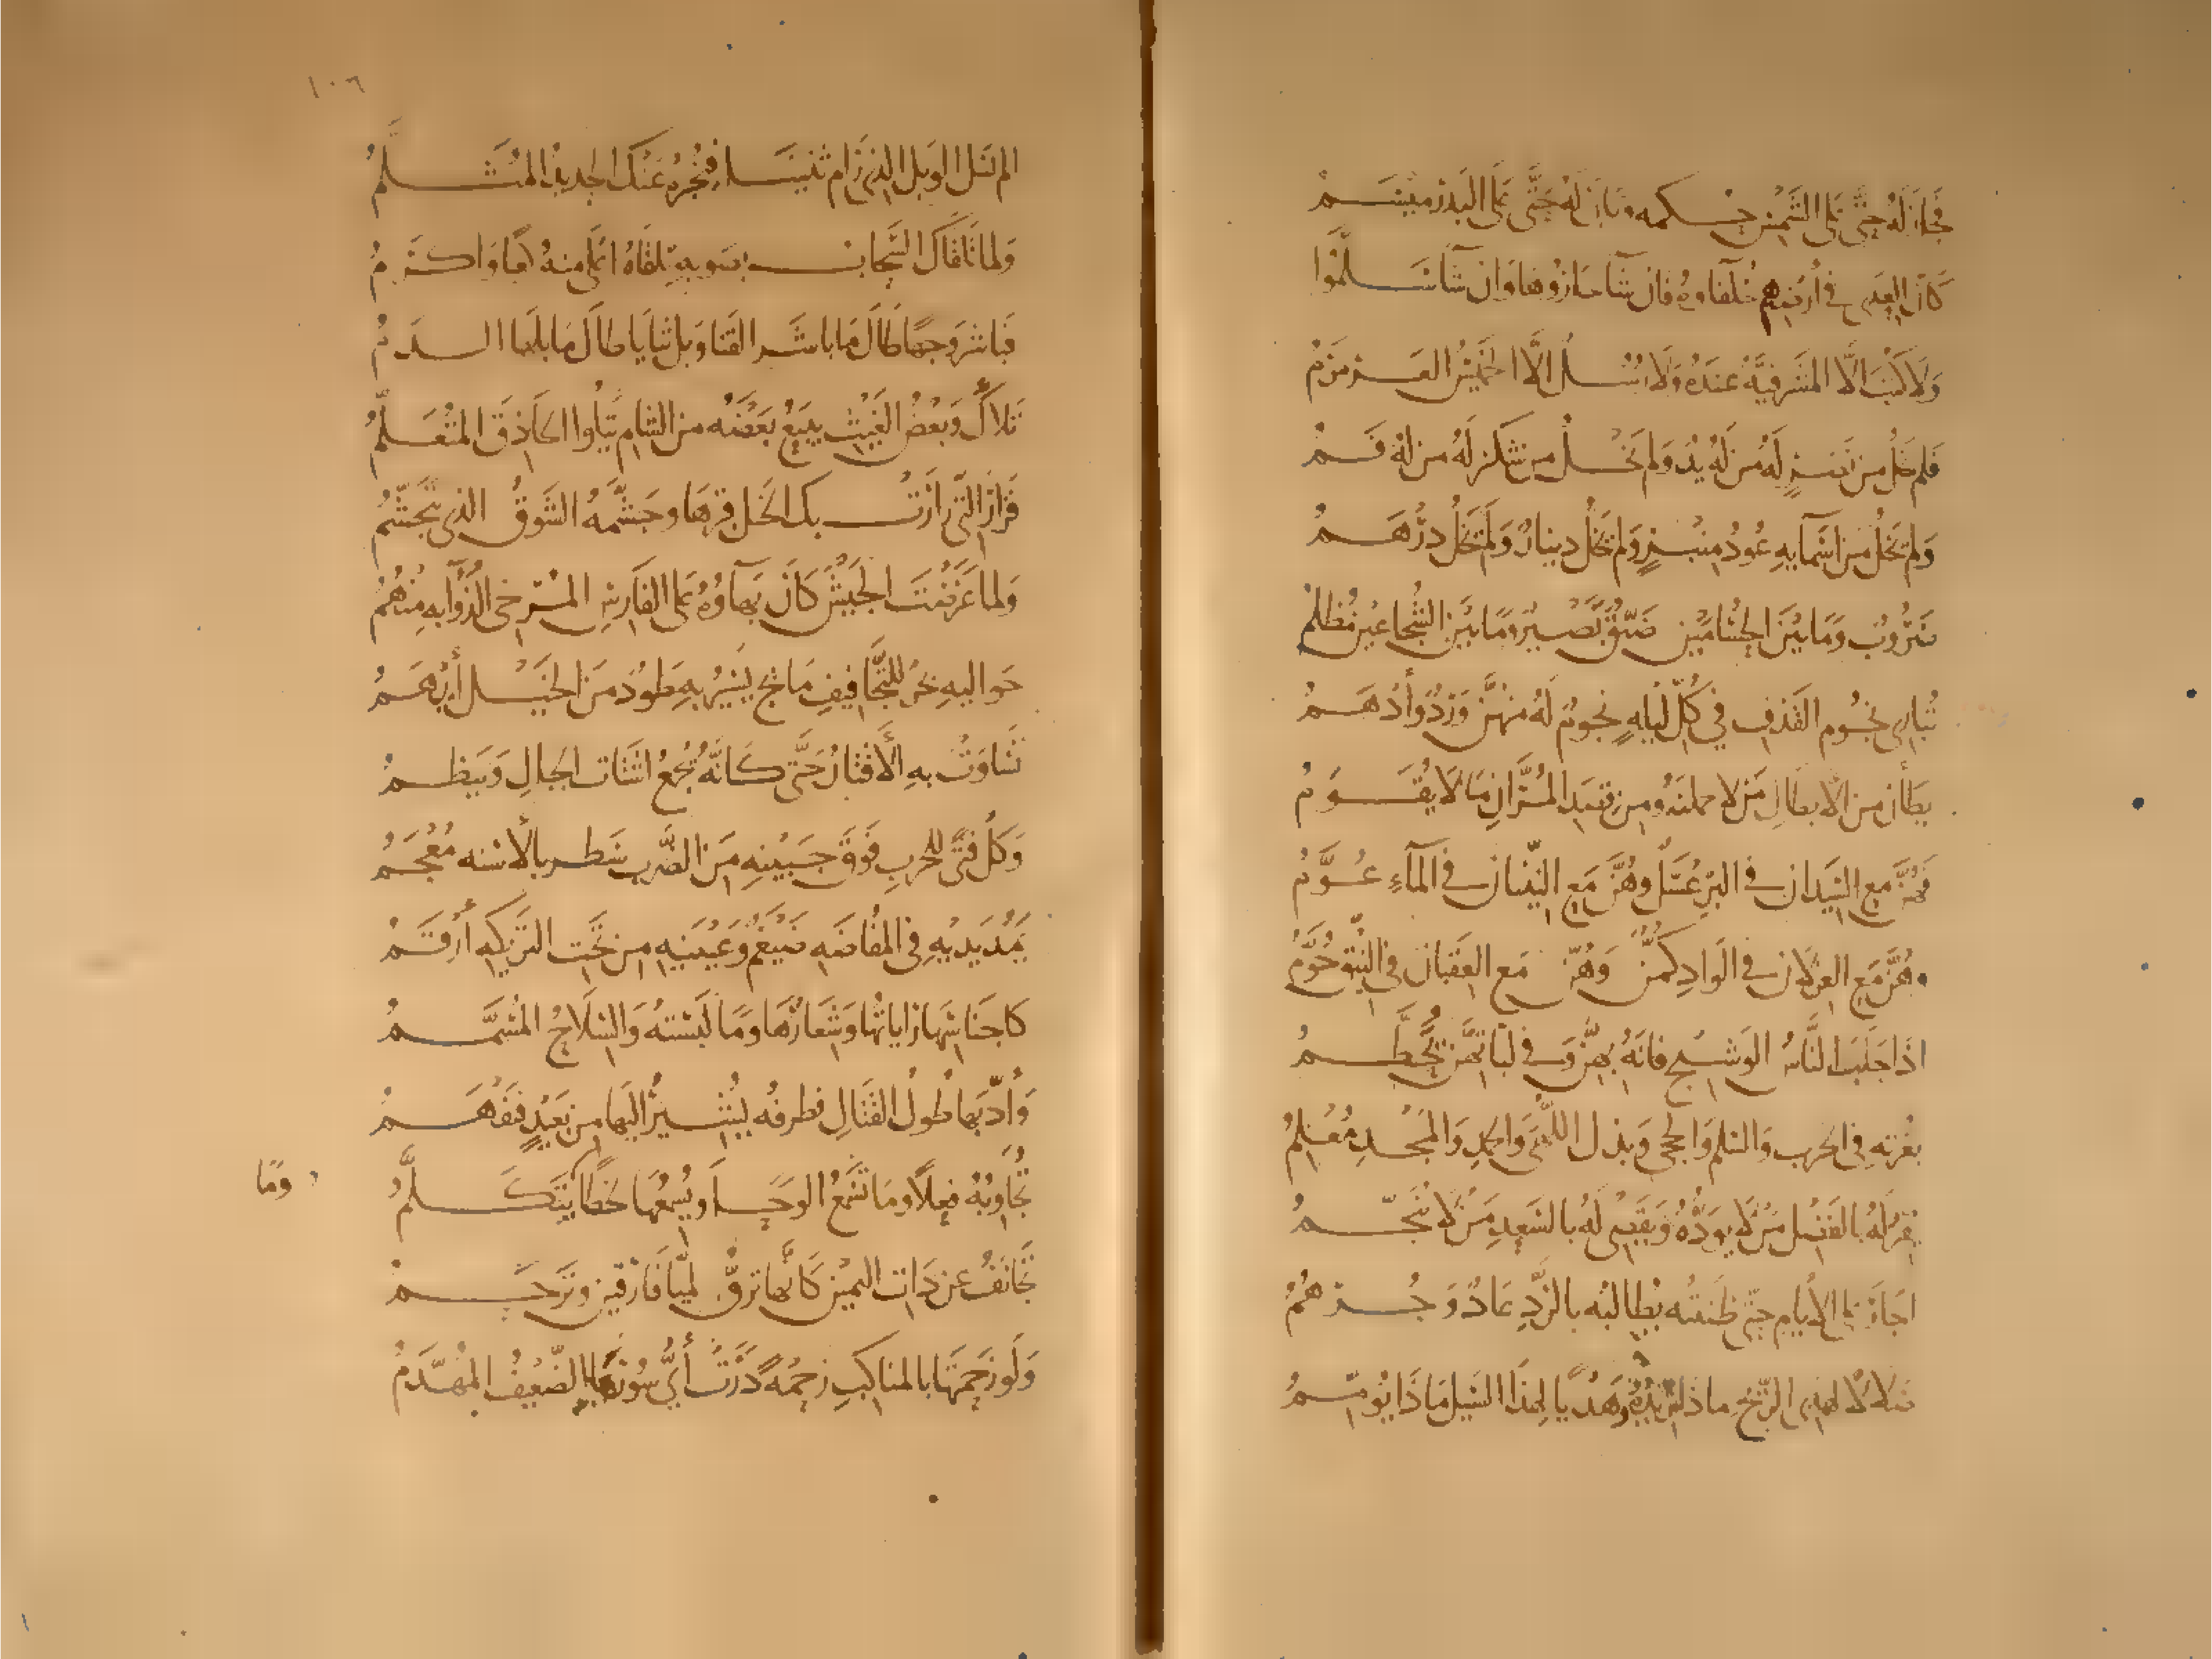 فَجَازَ لَهُ حَتَّى عَلَى الشَّمْسِ حُكمه وَبَانَ لَهُ حَتَّى عَلَى البَدْرِ مِيْسَمُ
كَأَنَّ العِدَى في أَرْضِهِم خُلَفَاوهُ فَان شَآ حَازُوهَا وَان شَآ سَلَّمُوا
وَلَا كُتْبَ الَّا المَشْرَفِيَّةُ عِنْدَهُ وَلَا رُسُلٌ الَّا الخَمِيْسُ العَرَمْرَمُ
فَلم يَخْلُ من نَصْرٍ لَهُ مَن لَهُ يَدٌ وَلم يَخْلُ من شُكرٍ لَهُ من لَهُ فَمُ
وَلم يَخْلُ من اَسْمَآيِهِ عُودُ مِنْبَرٍ وَلم يَخْلُ دِينَارٌ وَلَم يَخْلُ دِرْهَمُ
ضَرُوبٌ وَمَا بَيْنَ الحُسَامَيْنِ ضَيِّقٌ بَصِيْرٌ وَمَا بَيْنَ الشُّجَاعَيْنِ مُظْلِمُ
تُبَارِى نُجُومَ القَذْفِ فِي كُلِّ لَيْلَهٍ نُجُومٌ لَهُ مِنْهُنَّ وَرْدٌ وَأَدْهَمُ
يَطَأنَ من الأَبطَالِ مَن لا حملنَهُ ومن قِصَدِ المُرَّانِ مَا لَا يُقَوَّمُ
فَهُنَّ مَعَ السِّيدَانِ في البَرِّ عُسَّلٌ وَهُنَّ مَعَ النِّينَانِ في المَآءِ عُوَّمُ
وهُنَّ مَعَ الغِزلَانِ في الوَادِ كُمَّنٌ وَهُنّ مَع العِقبَانِ في النِّيقِ حُوَّمُ
اذَا جَلَبَ النَّاسُ الوَشِيجَ فانَهُ بهِنَّ وَفي لَبَّاتِهِنَّ يُحَطَّمُ
بغُرّتِهِ في الحَرب وَالسّلم وَالحِجَى وَبَذلِ اللُّهَى وَالحَمدِ وَالمَجْدِ مُعْلِمُ
يُقِرُّ لَهُ بالفَضْلِ مَنْ لَا يَوَدُّهُ وَيَقضِى لَهُ بالسَّعدِ مَنْ لَا يُنَجِّمُ
اجَارَ عَلى الأَيام حَتَّى ظَنَنتُه يُطَالبُه بالرَّدِّ عَادٌ وَجُرهُمُ
ضَلَالًا لهَذِى الرّيْحِ ماذَا تُرِيْدُهُ وَهَدْيًا لِهذَا السَّيلِ مَاذَا يُؤَمِّمُ
١٠٦
الم يَسَلِ الوَبلُ الذى رَامَ ثَنْيَنَا فَيُخْبِرُهُ عَنكَ الحَدِيدُ المُثَلَّمُ
وَلَما تَلَقَّاكَ السَّحَابُ بصَوبِهِ تَلَقَاهُ اعلَى مِنهُ كَعْبًا وَاكرَمُ
فَبَاشَرَ وَجهًا طَالَ مَا بَاشَرَ القَنَا وَبَلَّ ثيَابًا طالَ مَا بلّها الدَّمُ
تَلَاكَ وَبَعْضُ الغَيْثِ يَتبَعُ بَعْضَهُ من الشام يَتْلُوا الحَاذِقَ المُتَعَلِّمُ
فَزَارَ التي زَارَتْ بكَ الخَيلُ قبرَهَا وجَشَّمَهُ الشَّوقُ الذي تَتَجَشَّمُ
وَلما عَرَضْتَ الجَيْشَ كَانَ بَهَآؤُهُ على الفَارسِ المُرخى الذُّؤَابهِ مِنْهُمُ
حَوَاليهِ بَحرٌ للتَّجَافِيفِ مَائج يَسِيْرُ بِهِ طَودٌ مَنَ الخَيْلِ أَيْهَمُ
تَسَاوَتْ بهِ الأَقْتَارُ حَتَّى كَانَّهُ يُجَمِّعُ اشتَات الجبَالِ وَينظمُ
وَكُلُّ فَتًى للحَرب فَوقَ جَبِيْنِهِ مَنَ الضَّربِ سَطر بالأَسنه مُعْجَمُ
يَمُدُّ يَدَيْهِ في المُفَاضَهِ ضَيْغَمٌ وَعَيْنَيْهِ من تَحْتِ التَّريكَهِ أَرْقَمُ
كَاجنَاسِهَا رَايَاتُهَا وَشِعَارُهَا وَمَا لَبِسَتهُ وَالسِّلَاحُ المُسَمَّمُ
وَأَدَّبَها طُولُ القتَالِ فطرفُه يُشِيرُ اليَها من بَعيْدٍ فَتَفْهَمُ
تُجَاوِبُهُ فِعلًا وَمَا تَسْمَعُ الوَحَا وَيُسْمِعُهَا لَحْظًا وَمَا يَتَكَلَّمُ
وَمَا
تَجَانَفُ عن ذَات اليَمِيْنِ كَأَنَّها ترقُّ لميَّافَارقِين وَتَرْحَمُ
وَلَو زَحَمَتهَا بالمناكبِ زَحْمَةً دَرَتْ أَيُّ سُورَيها الضَّعِيْفُ المُهَدَّمُ